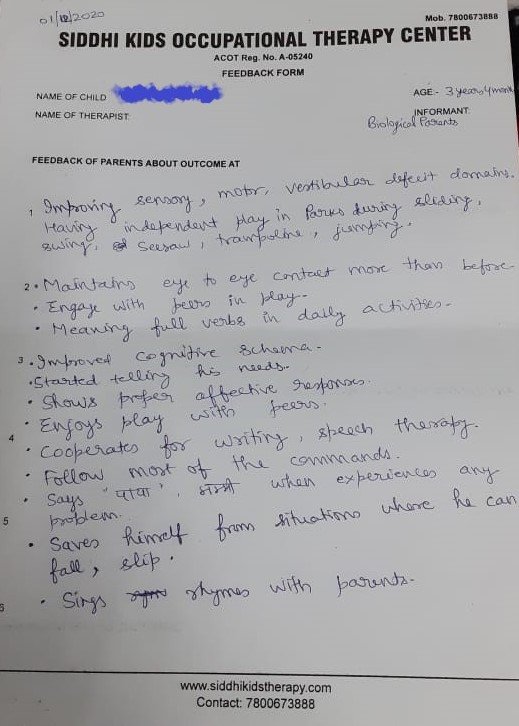 01/12/2020
Mob. 7800673888
SIDDHI KIDS OCCUPATIONAL THERAPY CENTER
ACOT Reg. No. A-05240
FEEDBACK FORM
NAME OF CHILD
AGE:- 3 years 4 month
NAME OF THERAPIST
INFORMANT
Biological Parents
FEEDBACK OF PARENTS ABOUT OUTCOME AT
1 Improving sensory, motor, vestibular deficit domains.
Having independent play in Parks during sliding,
swing, seesaw, trampoline, jumping.
2 • Maintains eye to eye contact more than before
• Engage with peers in play.
• Meaning full verbs in daily activities.
3 • Improved cognitive schema.
• Started telling his needs.
• Shows proper affective responses.
• Enjoys play with peers.
4
• Cooperates for writing, speech therapy.
• Follow most of the commands.
• Says "पापा", मम्मी when experiences any
problem.
5
• Saves himself from situations where he can
fall, slip.
6
• Sings rhymes with parents.
www.siddhikidstherapy.com
Contact: 7800673888